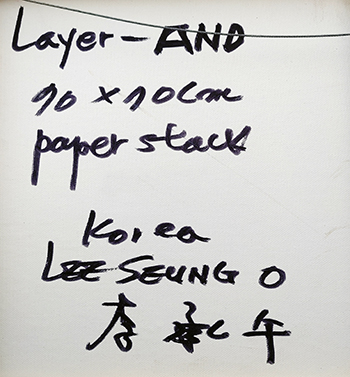 Layer - AND
70 x 70cm
paper stack
Korea
LEE SEUNG O
李 承 午